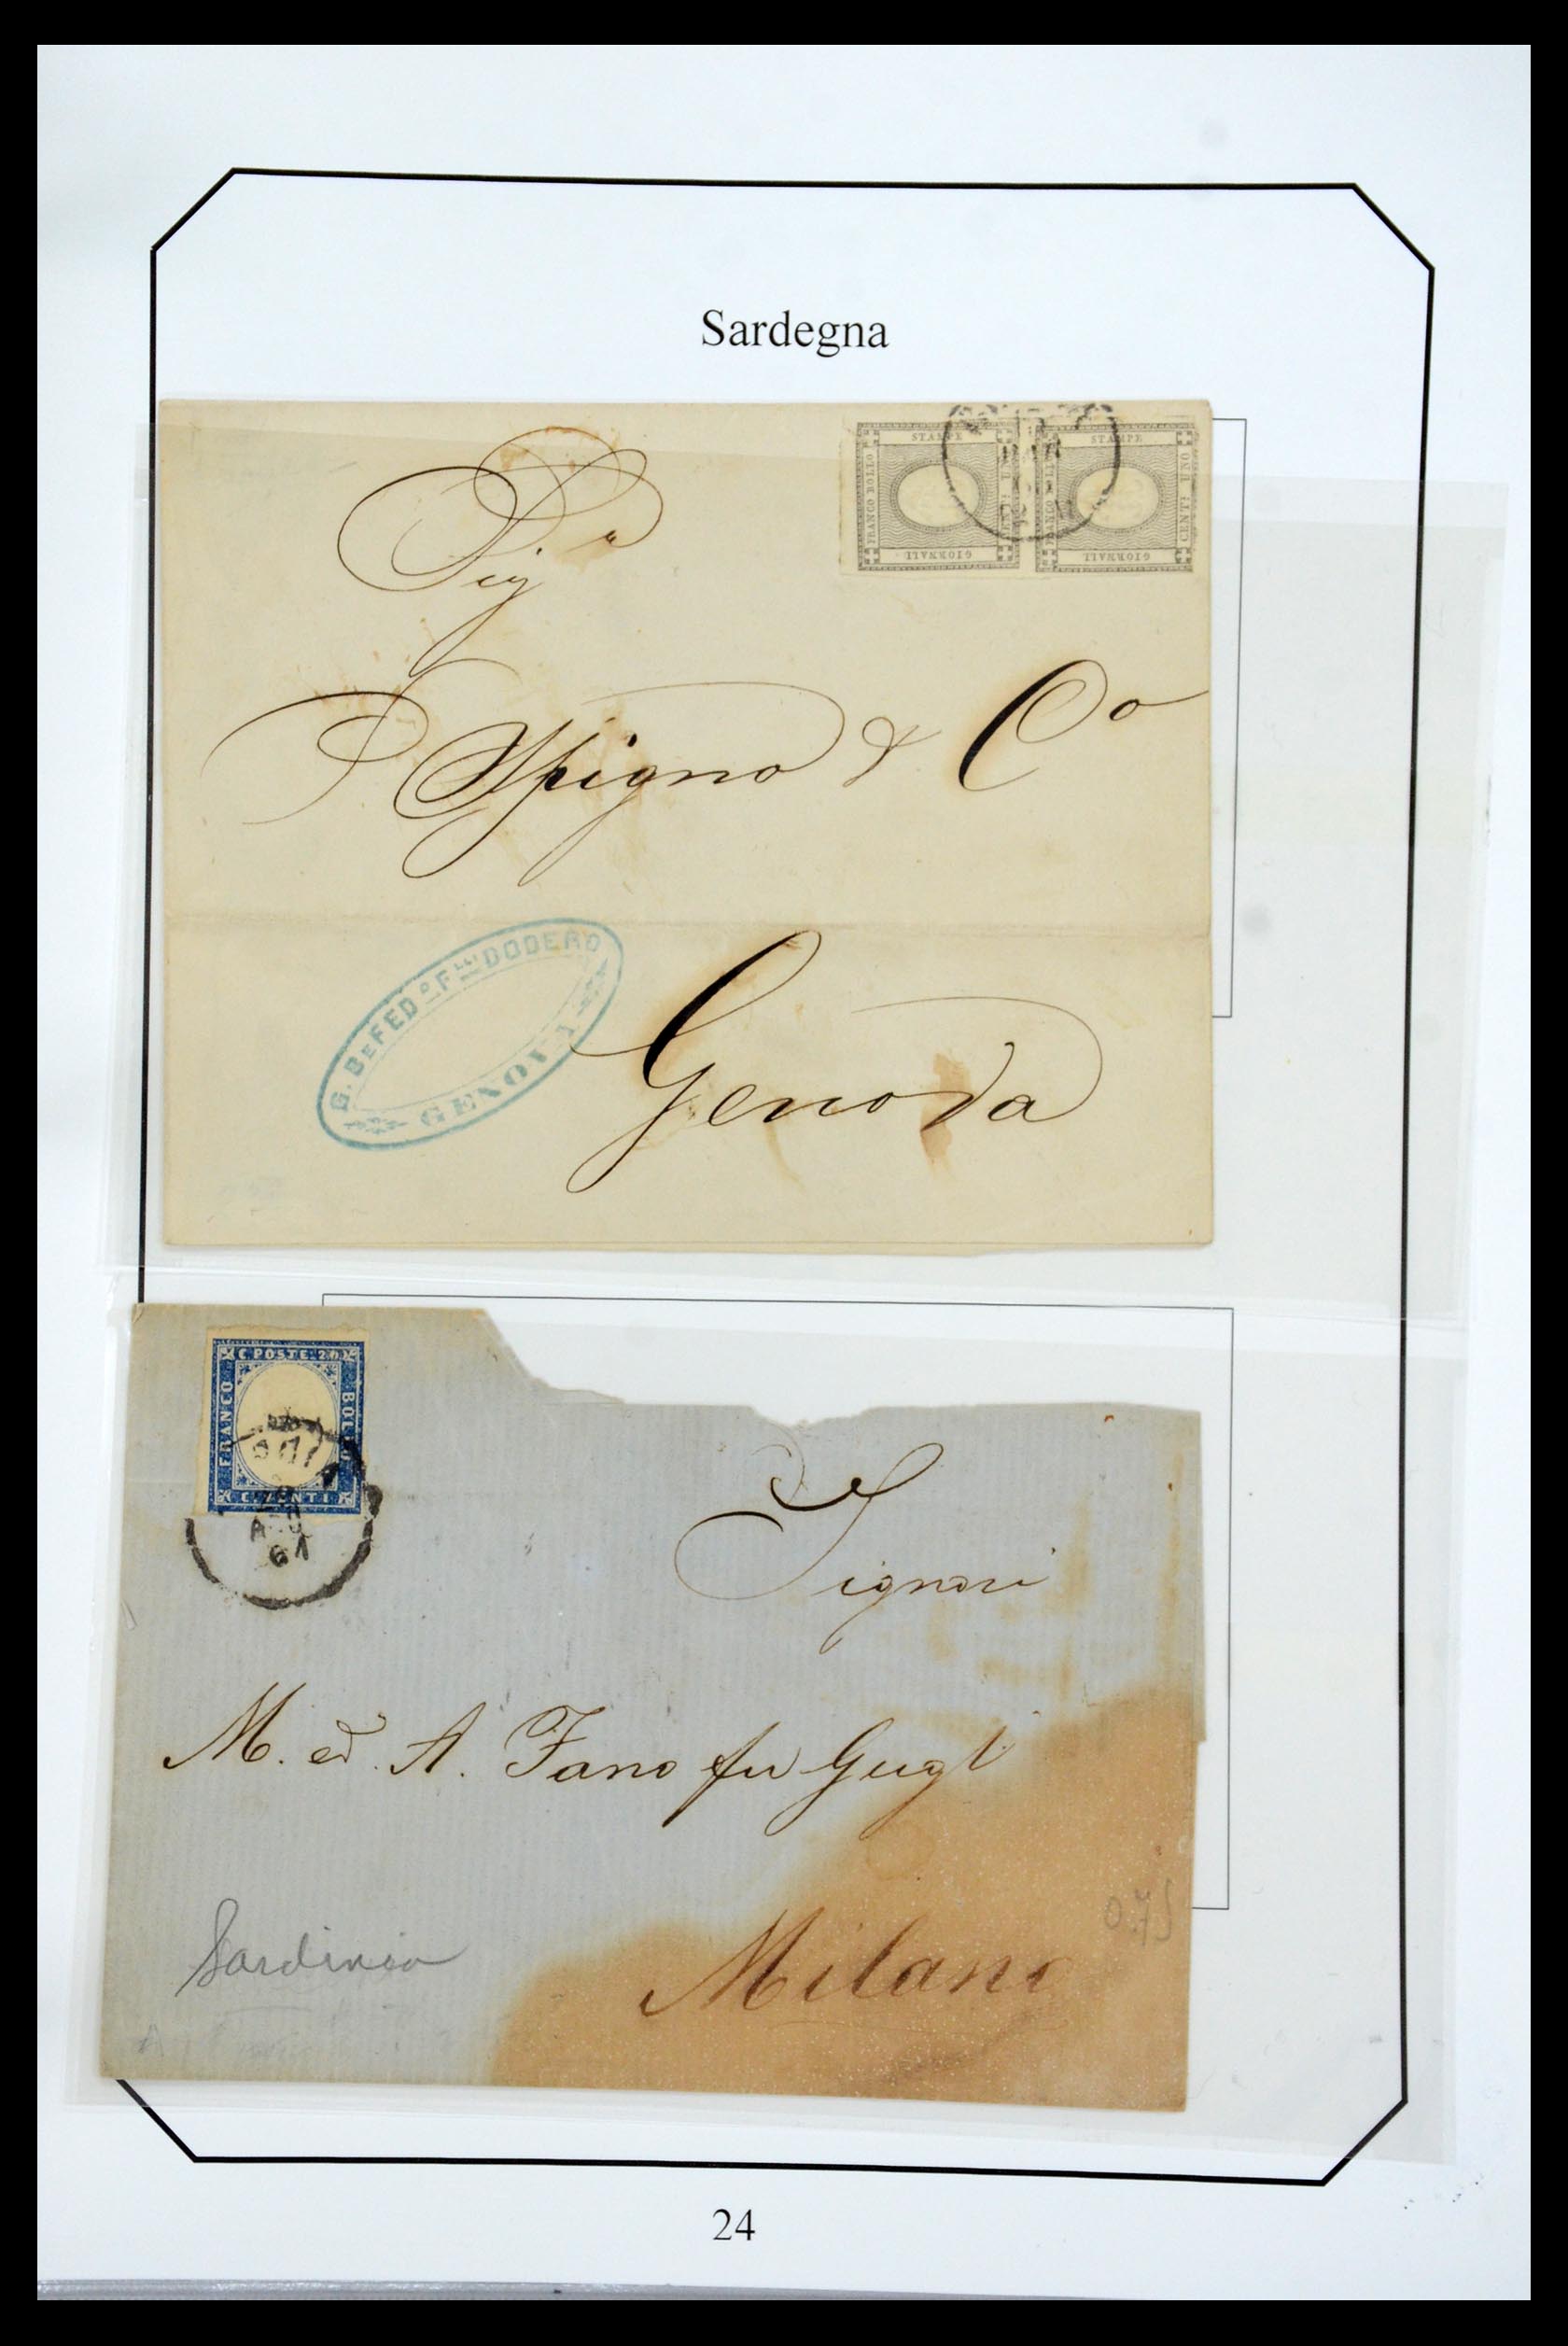 Sardegna
STAMPE
FRANCO BOLLO
GIORNALI
STAMPE
CENT UNO
GIORNALI
MAR
61
Sig.r
Spigno & Co
G. B. e FED.co F.lli DODERO
GENOVA
Genova
C. POSTE 20
FRANCO
BOLLO
CENTI
61
Signori
M. ed A. Fano fu Gugl
Milano
Sardinia
24